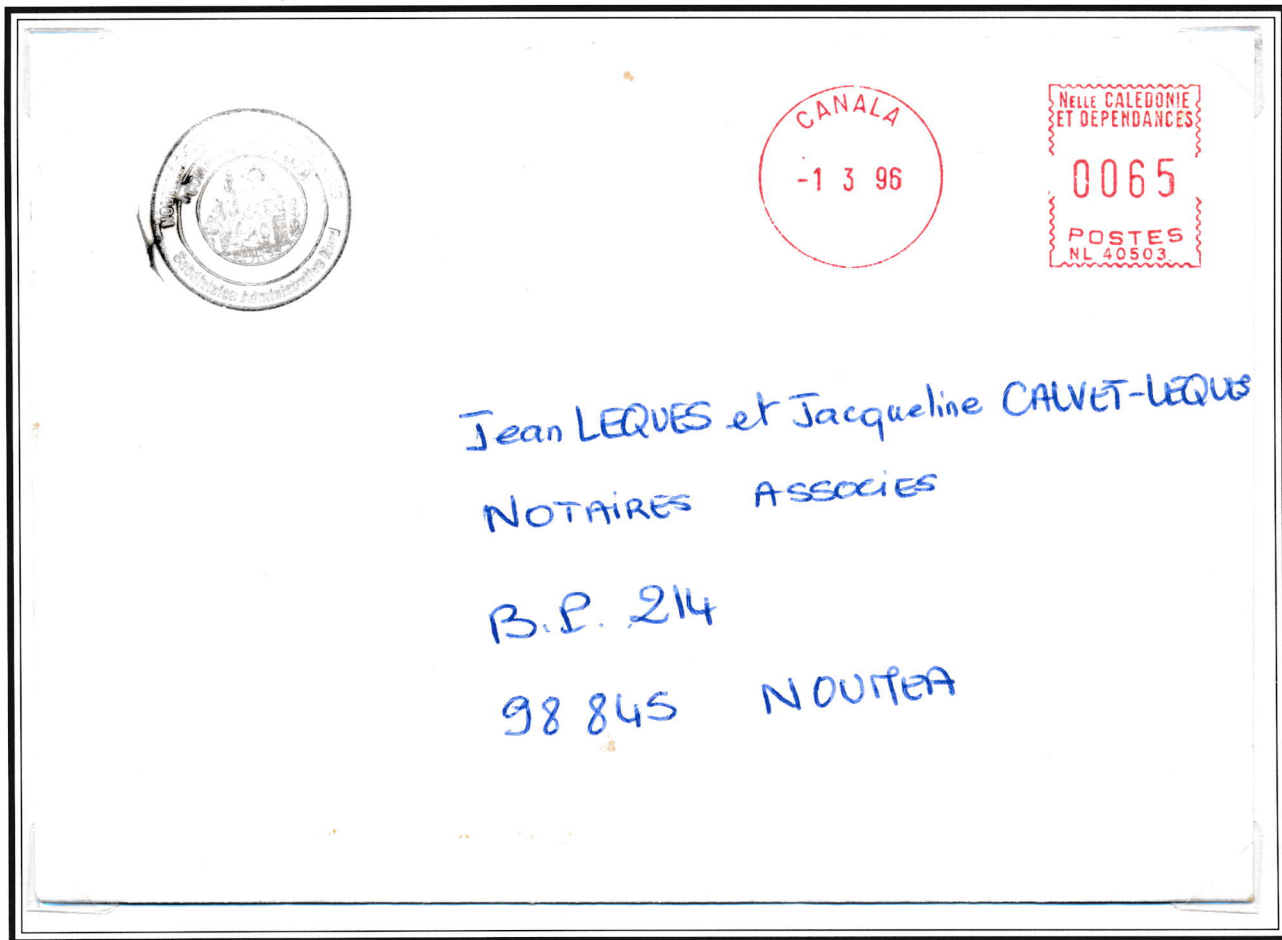 CANALA
-1 3 96
NELLE CALEDONIE
ET DEPENDANCES
0065
POSTES
NL 40503
Subdivision Administrative Nord
Jean LEQUES et Jacqueline CALVET-LEQUES
NOTAIRES ASSOCIES
B.P. 214
98 845 NOUMEA